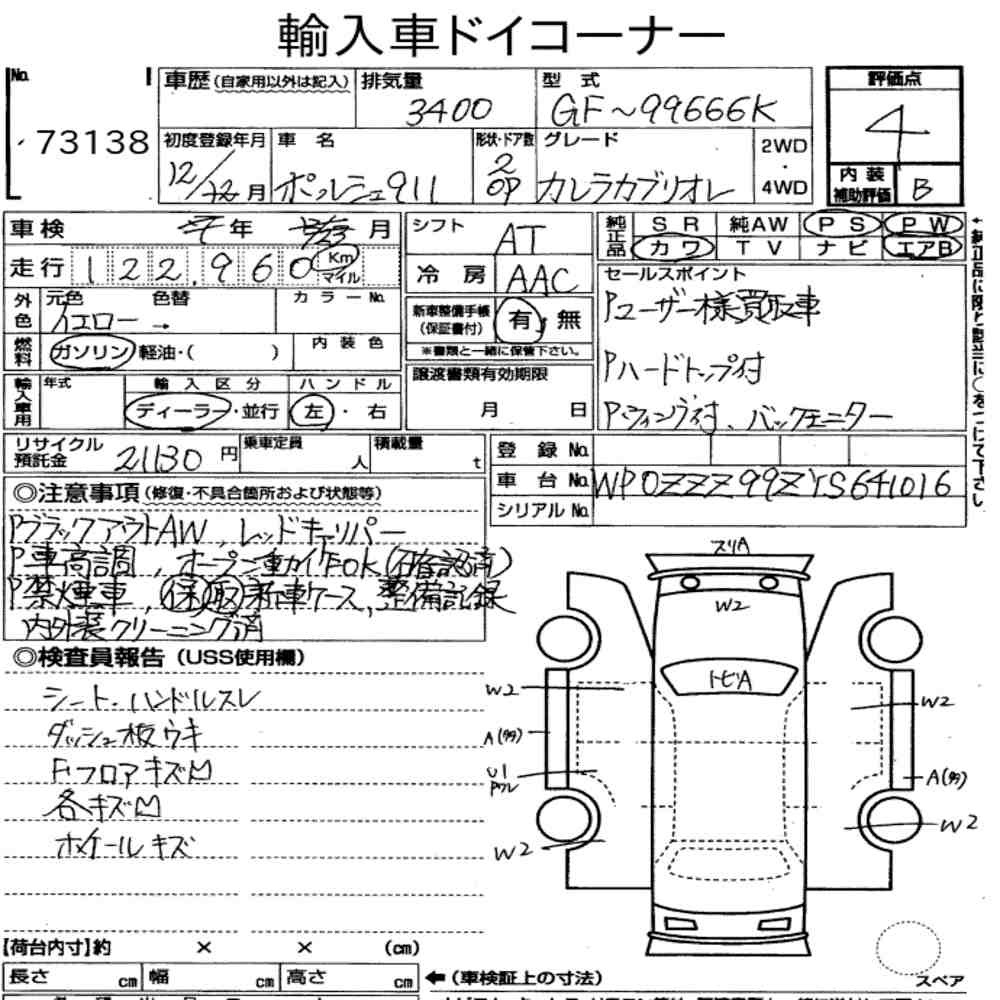 輸入車ドイコーナー
No.
73138
車歴(自家用以外は記入) 排気量 型式 評価点
3400 GF~99666K 4
初度登録年月 車名 形状・ドア数 グレード 2WD・4WD
12/12月 ポルシェ911 2 OP カレラカブリオレ
内装補助評価 B
車検 年 月 シフト AT
純正品 SR 純AW PS PW
カワ TV ナビ エアB
走行 122,960 Km マイル
冷房 AAC
セールスポイント
外色 元色 色替 カラーNo.
イエロー →
新車整備手帳(保証書付) 有・無
※書類と一緒に保管下さい。
Pユーザー様買取車
燃料 ガソリン・軽油・( ) 内装色
譲渡書類有効期限
月 日
Pハードトップ付
輸入車用 年式 輸入区分 ハンドル
ディーラー・並行 左・右
Pウィング付、バックモニター
リサイクル預託金 21130円 乗車定員 人 積載量 t
登録No.
車台No. WP0ZZZ99ZYS641016
シリアルNo.
◎注意事項(修復・不具合箇所および状態等)
PブラックアウトAW、レッドキャリパー
P車高調、オープン動作OK(確認済)
P禁煙車、保取新車ケース、整備記録
内外装クリーニング済
◎検査員報告(USS使用欄)
シート・ハンドルスレ
ダッシュ板ウキ
Fフロアキズ凹
各キズ凹
ホイールキズ
スリA
W2
トビA
W2 W2
A(多)
U1
A(多)
W2 W2
【荷台内寸】約 × × (cm)
長さ cm 幅 cm 高さ cm
←(車検証上の寸法)
スペア